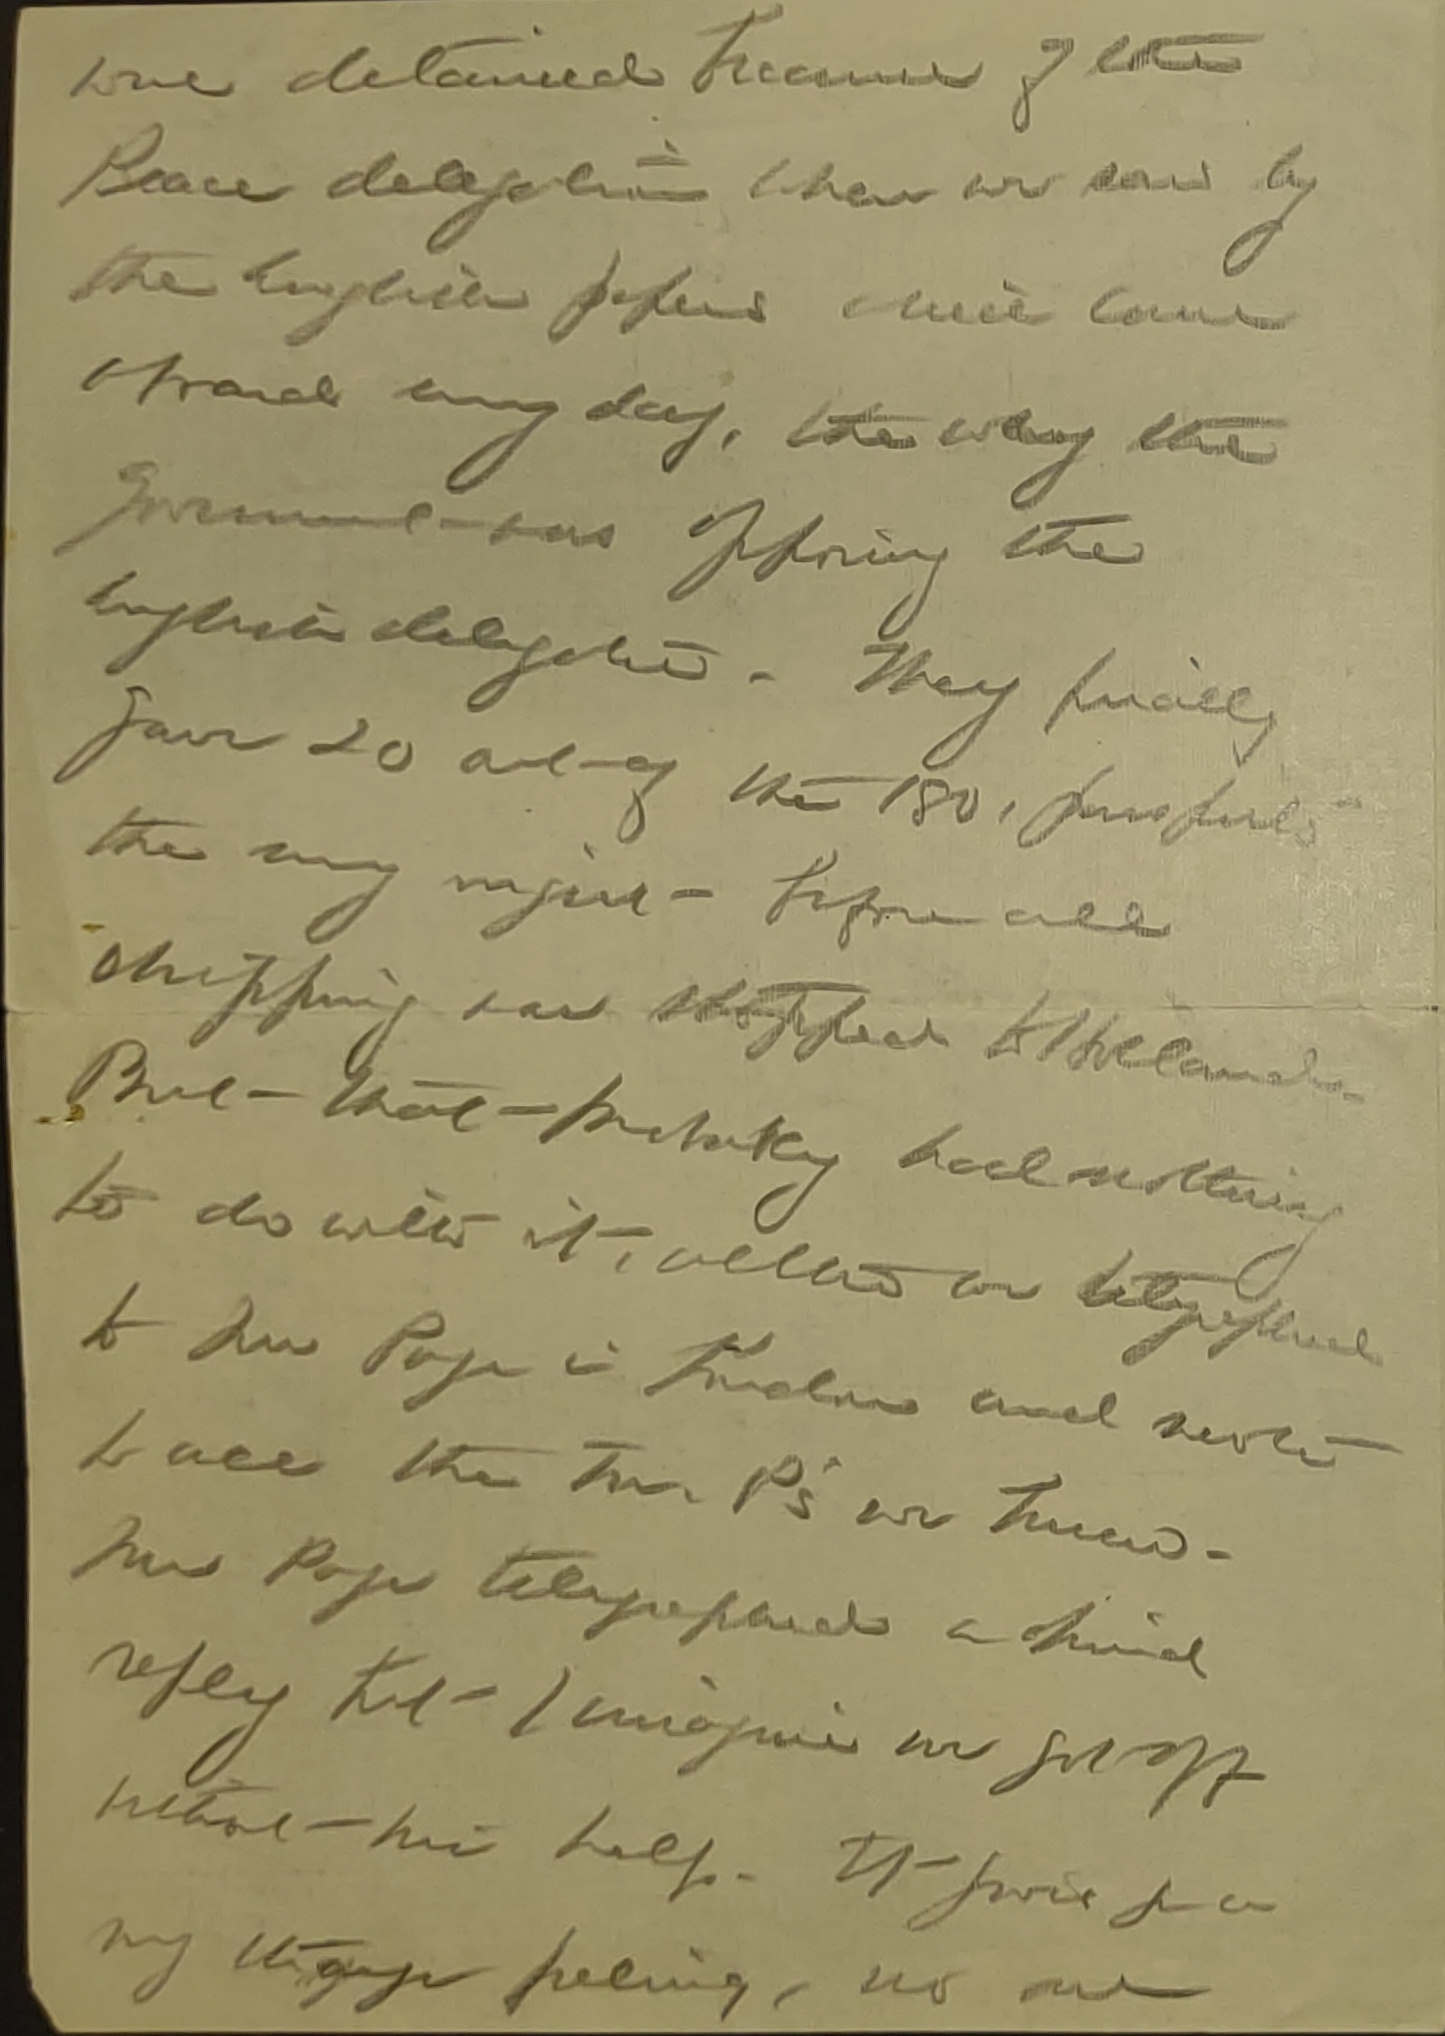 were detained because of the
Peace delegation when we saw by
the English papers which came
aboard every day, the way the
Government was opposing the
English delegates - They finally
gave 20 out of the 180, passports
the very night - before all
shipping was stopped to Holland -
But - that - probably had nothing
to do with it, altho we telegraphed
to Mr Page in London and wrote
to all the M. P's we knew -
Mr Page telegraphed a kind
reply but - I imagine we got off
without - his help. It gave me a
very strange feeling, no one